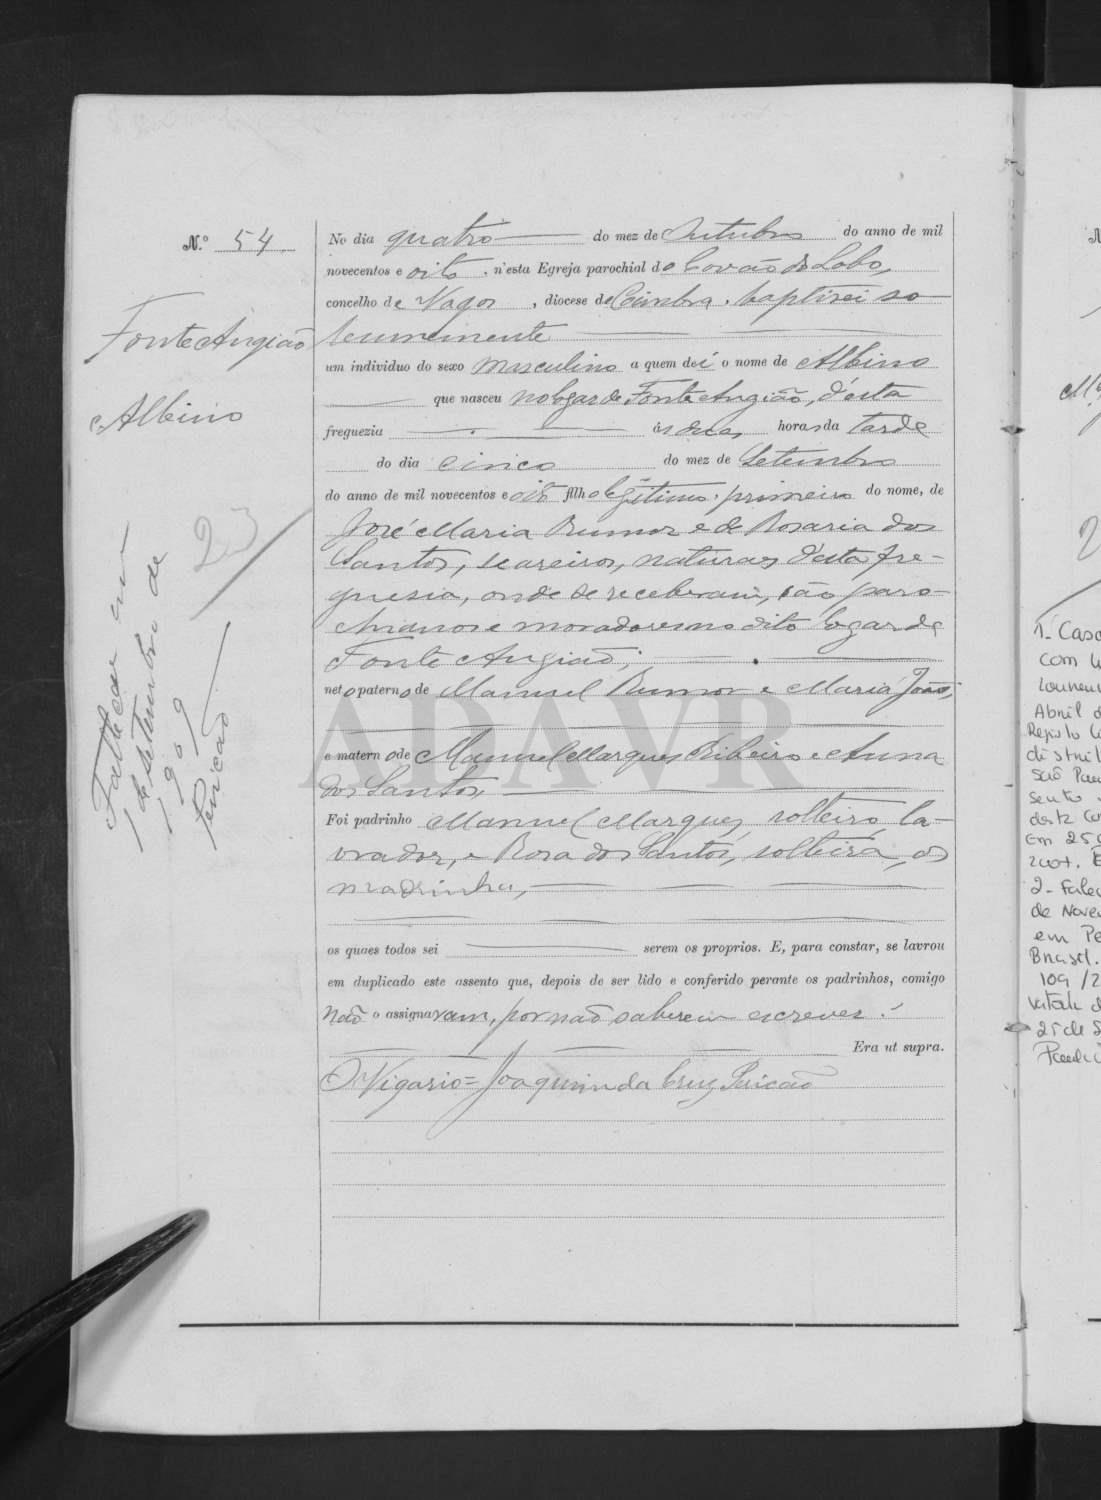 N.º 54
Fonte Angião
Albino
23
Falleceu em
1 de Setembro de
1909
Puicão
No dia quatro do mez de Outubro do anno de mil
novecentos e oito, n'esta Egreja parochial do Covão do Lobo,
concelho de Vagos, diocese de Coimbra, baptizei so-
lemnemente
um individuo do sexo masculino a quem dei o nome de Albino
que nasceu no logar de Fonte Angião, d'esta
freguezia ás duas horas da tarde
do dia cinco do mez de Setembro
do anno de mil novecentos e oito filho legitimo, primeiro do nome, de
José Maria Rumor e de Rosaria dos
Santos, seareiros, naturaes d'esta fre-
guesia, onde se receberam, são paro-
chianos e moradores no dito logar de
Fonte Angião;
neto paterno de Manuel Rumor e Maria João,
e materno de Manuel Marques Ribeiro e Anna
dos Santos
Foi padrinho Manuel Marques, solteiro la-
vrador, e Rosa dos Santos, solteira, os
madrinha,
os quaes todos sei serem os proprios. E, para constar, se lavrou
em duplicado este assento que, depois de ser lido e conferido perante os padrinhos, comigo
não o assignaram, por não saberem escrever.
Era ut supra.
O Vigario = Joaquim da Cruz Puicão
ADAVR
1- Caso
com
Abril d
Registo Ci
distrit
São Pau
sento
desta Co
Em 25
2001.
2- Falec
de Nove
em Pe
Brasil.
109/2
25 de S